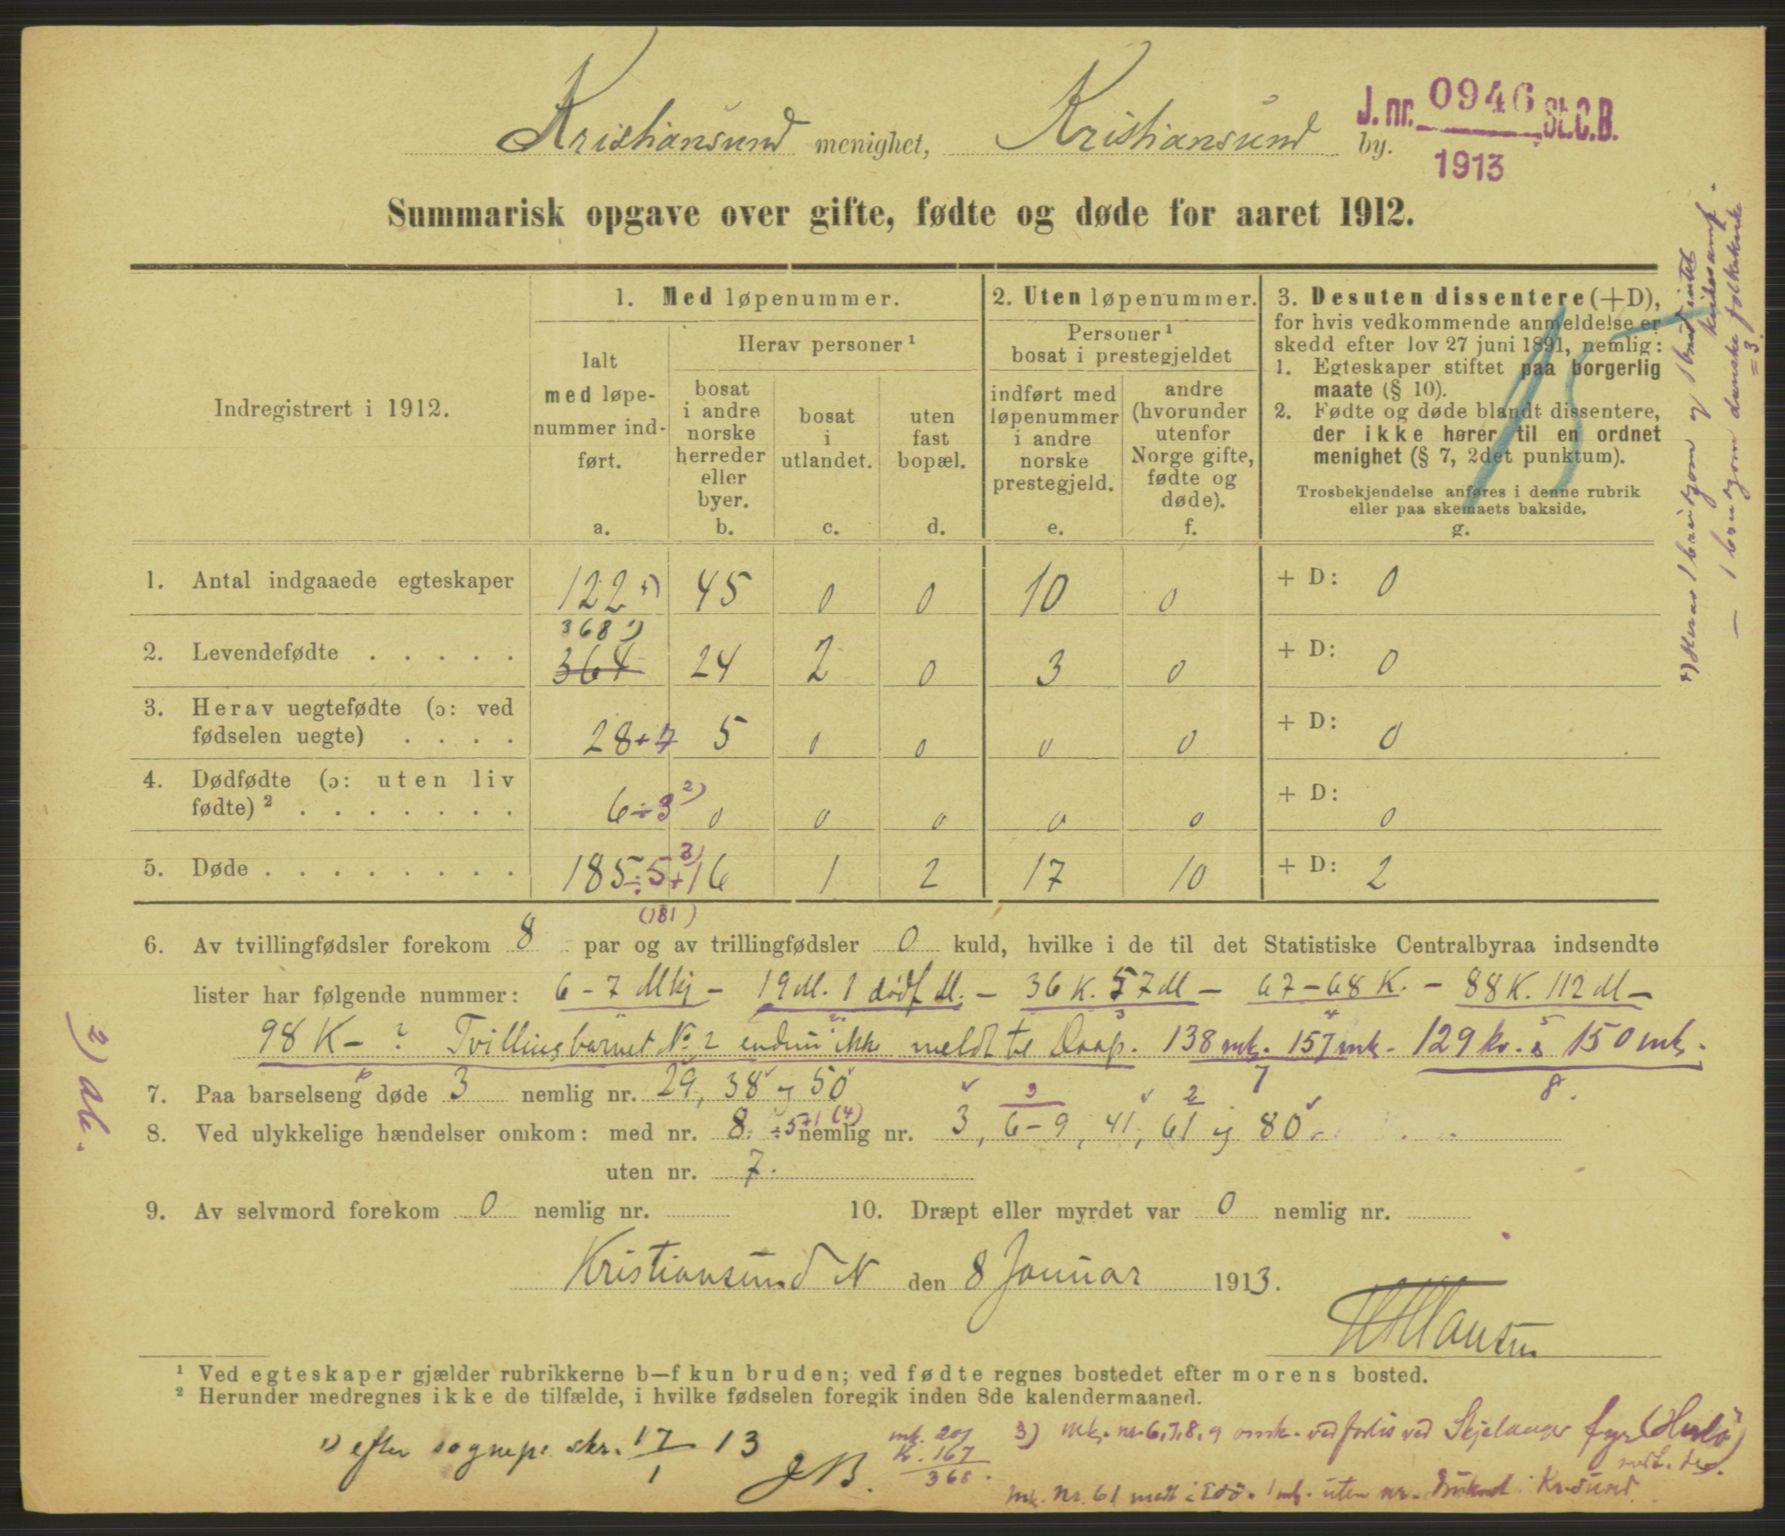 Kristiansund menighet, Kristiansund by.
J. nr. 0946 St.C.B.
1913
Summarisk opgave over gifte, fødte og døde for aaret 1912.
Indregistrert i 1912.
1. Med løpenummer.
Ialt
med løpe-
nummer ind-
ført.
a.
Herav personer ¹
bosat
i andre
norske
herreder
eller
byer.
b.
bosat
i
utlandet.
c.
uten
fast
bopæl.
d.
2. Uten løpenummer.
Personer ¹
bosat i prestegjeldet
indført med
løpenummer
i andre
norske
prestegjeld.
e.
andre
(hvorunder
utenfor
Norge gifte,
fødte og
døde).
f.
3. Desuten dissentere (+D),
for hvis vedkommende anmeldelse er
skedd efter lov 27 juni 1891, nemlig:
1. Egteskaper stiftet paa borgerlig
maate (§ 10).
2. Fødte og døde blandt dissentere,
der ikke hører til en ordnet
menighet (§ 7, 2det punktum).
Trosbekjendelse anføres i denne rubrik
eller paa skemaets bakside.
g.
15
1. Antal indgaaede egteskaper 122 45 0 0 10 0 + D: 0
368 ¹)
2. Levendefødte . . . . . 364 24 2 0 3 0 + D: 0
3. Herav uegtefødte (ɔ: ved
fødselen uegte) . . . . 28+7 5 0 0 0 0 + D: 0
4. Dødfødte (ɔ: uten liv
fødte) ² . . . . . . . 6÷3 ²) 0 0 0 0 0 + D: 0
5. Døde . . . . . . . . 185÷5+1 ³) 16 1 2 17 10 + D: 2
(181)
6. Av tvillingfødsler forekom 8 par og av trillingfødsler 0 kuld, hvilke i de til det Statistiske Centralbyraa indsendte
lister har følgende nummer: 6 - 7 Mkj - 19 M. 1 dødf M. - 36 K. 57 M - 67-68 K. - 88 K. 112 M -
98 K - ? Tvillingbarnet No 2 endnu ikke meldt til Daap. 138 mk. 157 mk. 129 kv. 150 mk.
7. Paa barselseng døde 3 nemlig nr. 29, 38 og 50
8. Ved ulykkelige hændelser omkom: med nr. 8 ÷5+1 (4) nemlig nr. 3, 6-9, 41, 61 og 80
uten nr. 7.
9. Av selvmord forekom 0 nemlig nr.
10. Dræpt eller myrdet var 0 nemlig nr.
Kristiansund N den 8 Januar 1913.
¹ Ved egteskaper gjælder rubrikkerne b—f kun bruden; ved fødte regnes bostedet efter morens bosted.
² Herunder medregnes ikke de tilfælde, i hvilke fødselen foregik inden 8de kalendermaaned.
¹) efter sognepr. skr. 17/1 13
mk. 201
K. 167
368.
3) mk. nr. 6,7,8,9 omk. ved forlis ved Skjelanger fyr (Herlø)
mk. Nr. 61 i Edø. 1 mk. uten nr. druknet i Kr.sund
2) Al.